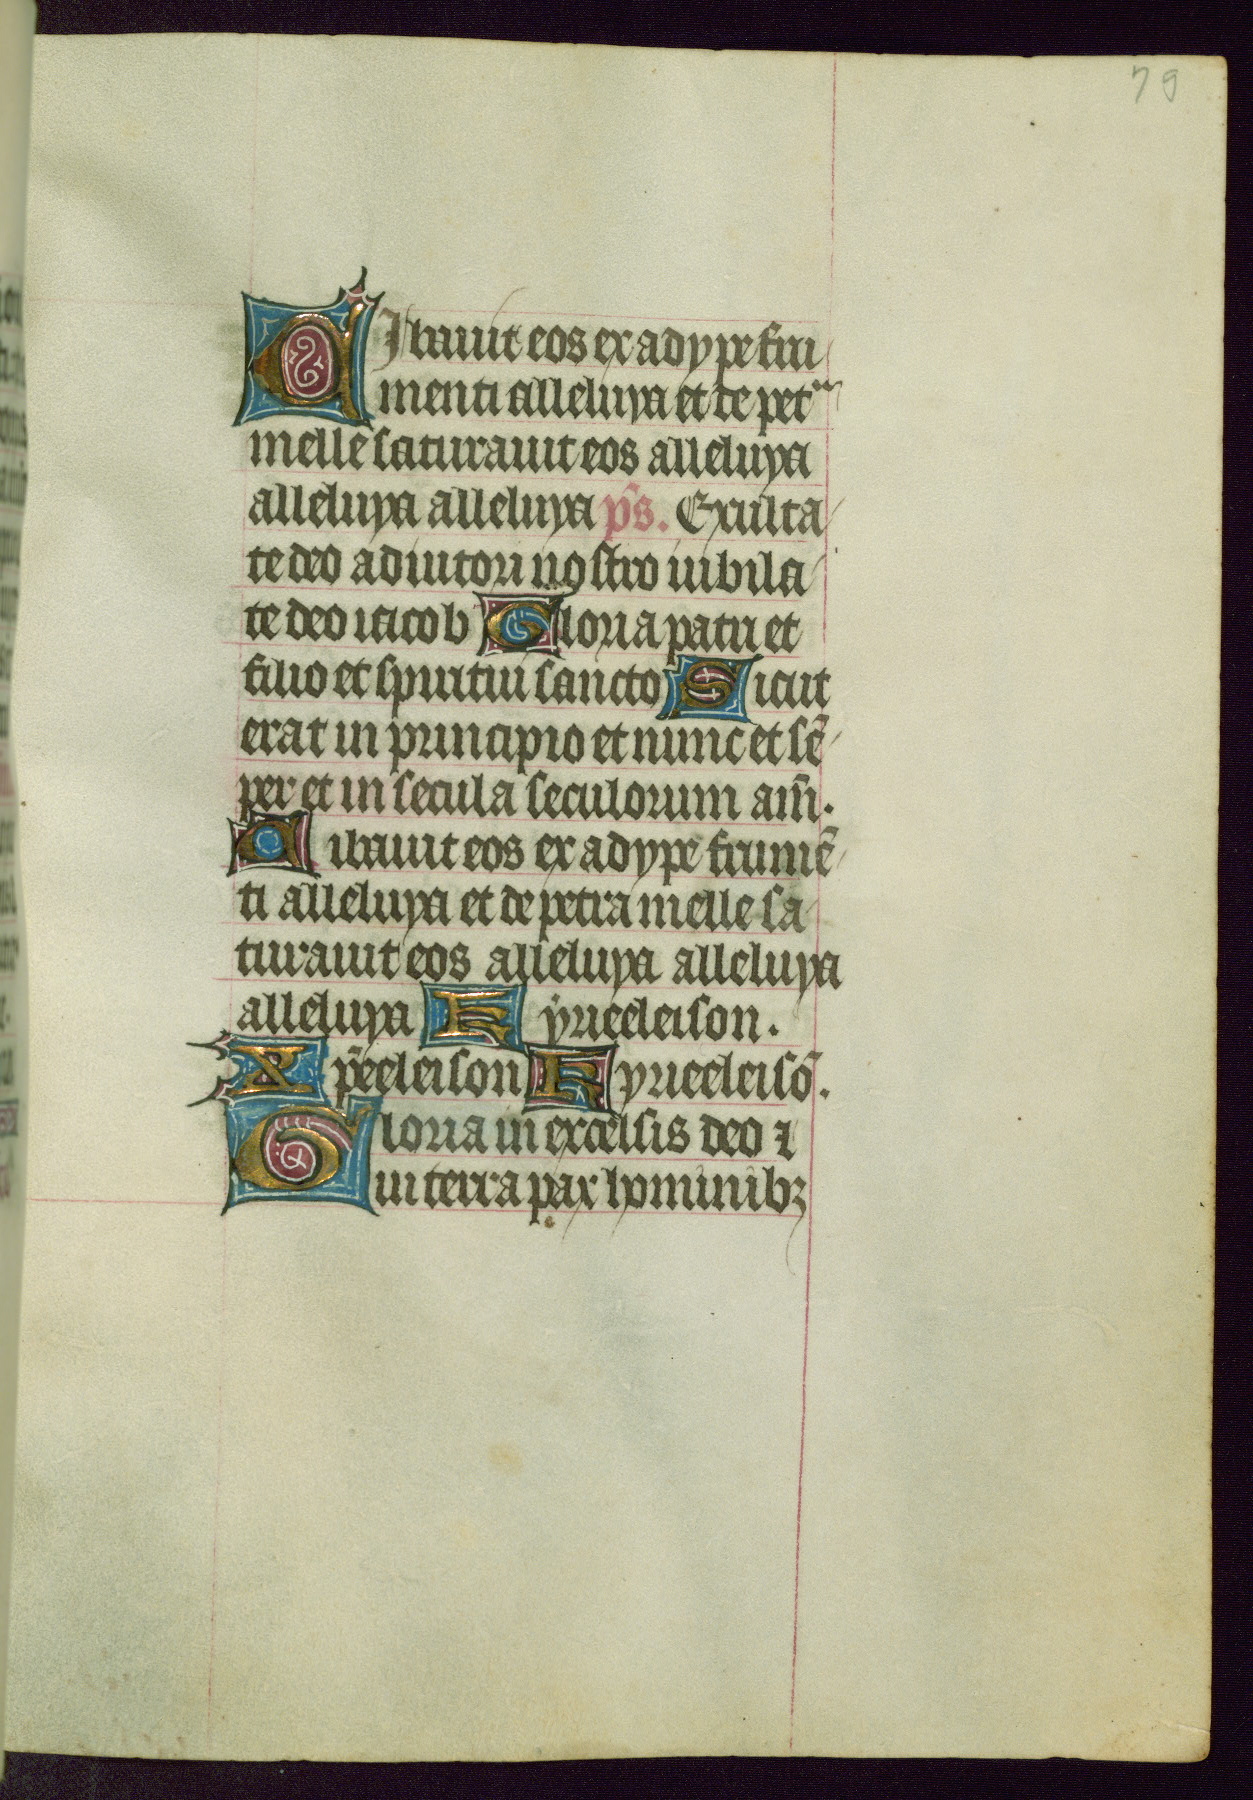 79
CIbauit eos ex adype fru
menti alleluya et de petra
melle saturauit eos alleluya
alleluya alleluya ps. Exulta
te deo adiutori nostro iubila
te deo iacob Gloria patri et
filio et spiritui sancto Sicut
erat in principio et nunc et sē
per et in secula seculorum am̄.
Cibauit eos ex adype frumē
ti alleluya et de petra melle sa
turauit eos alleluya alleluya
alleluya Kyrieeleison.
Xp̄eeleison Kyrieeleisō.
Gloria in excelsis deo ⁊
in terra pax hominibꝫ